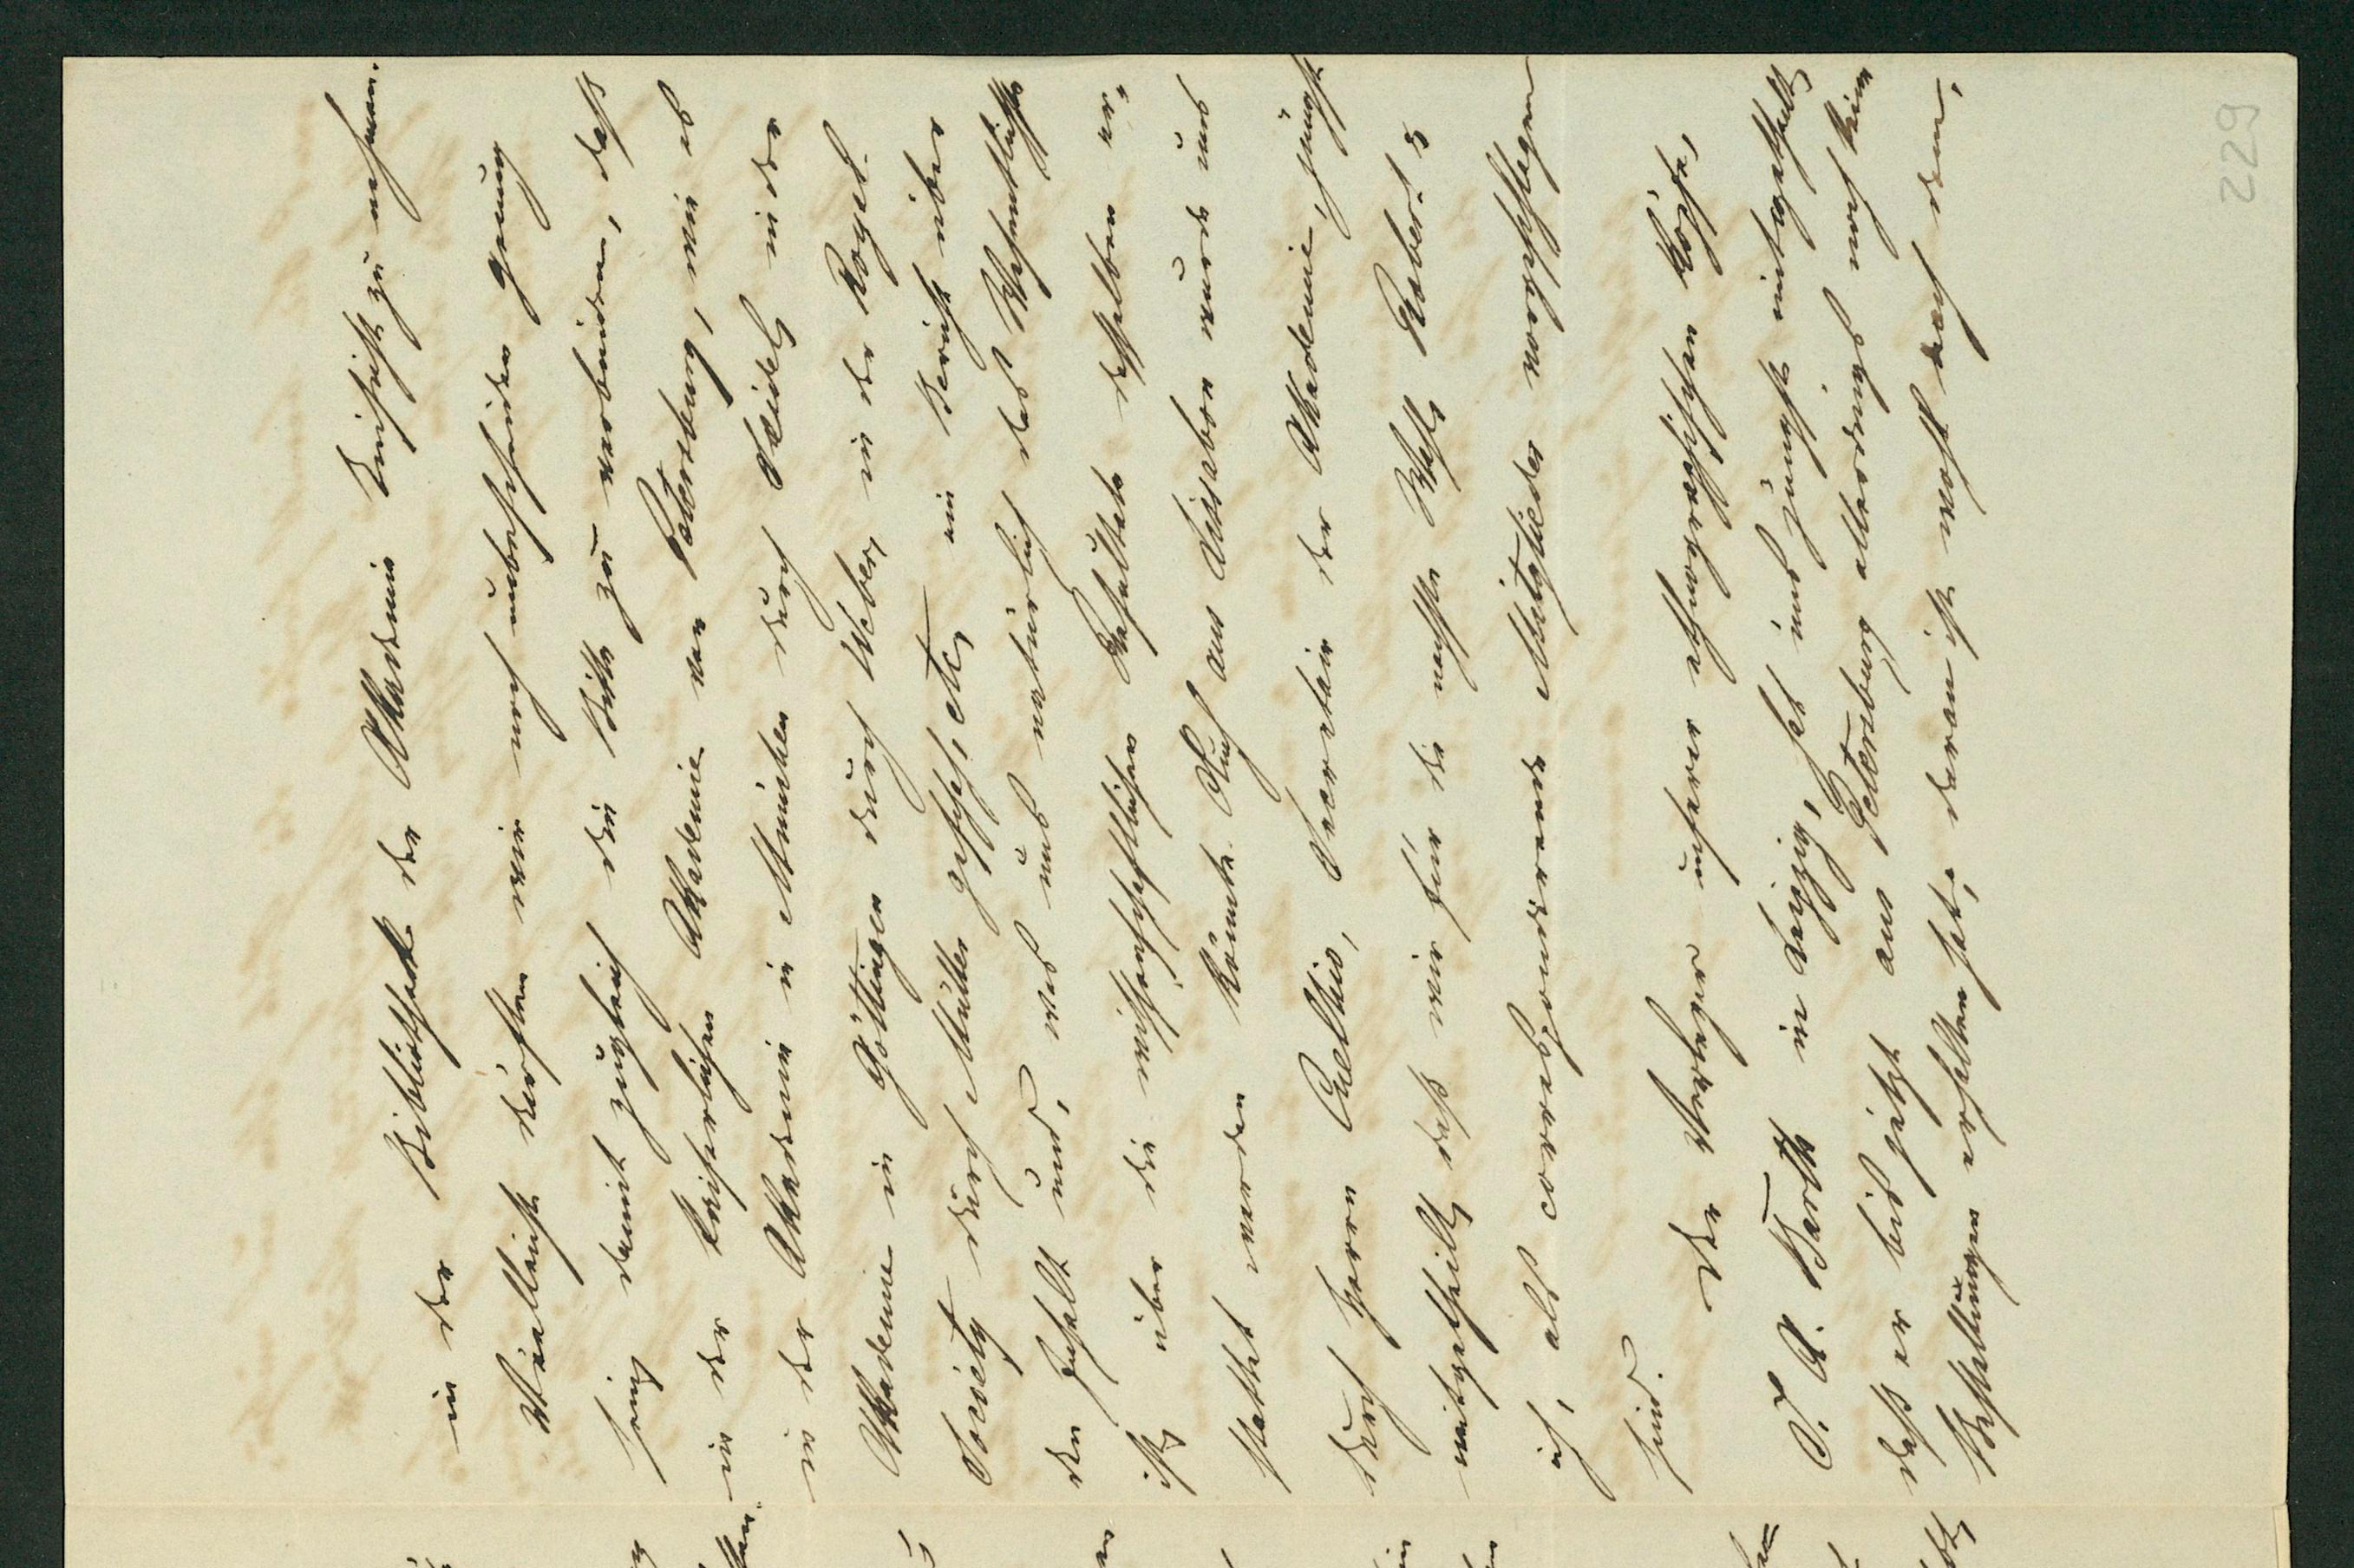 229
in der Bibliothek der Akademie Einsicht zu nehmen.
Vielleicht dürften wir noch unbescheiden genug
sein, damit zugleich die Bitte zu verbinden, daß
in der Kaiserlichen Akademie von Petersburg, wie es
in der Akademie in München durch Seidel, in der
Akademie in Göttingen durch Weber, in der Royal
Society durch Miller geschah, etc, ein Bericht über
den Inhalt und, was uns natürlich das Wesentlichste
ist, über die wissenschaftlichen Resultate desselben er-
stattet werden könnte. Auch aus Lissabon wurde uns
durch Herrn Coelho, Secretair der Akademie, jüngst
mitgetheilt, daß wir für die nächste Wahl Robert &
ich, als correspondirende Mitglieder vorgeschlagen
sind.
Der Verleger unserer ethnographischen Köpfe,
J. A. Barth in Leipzig, hat uns jüngst mitgetheilt,
daß er bis jetzt aus Petersburg allerdings noch keine
Bestellungen erhalten hat, daran ist wohl auch dem,